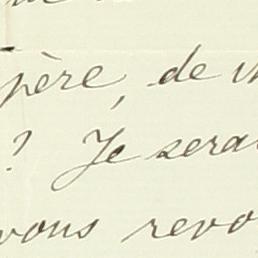 père, de v
? Je serai
vous revo